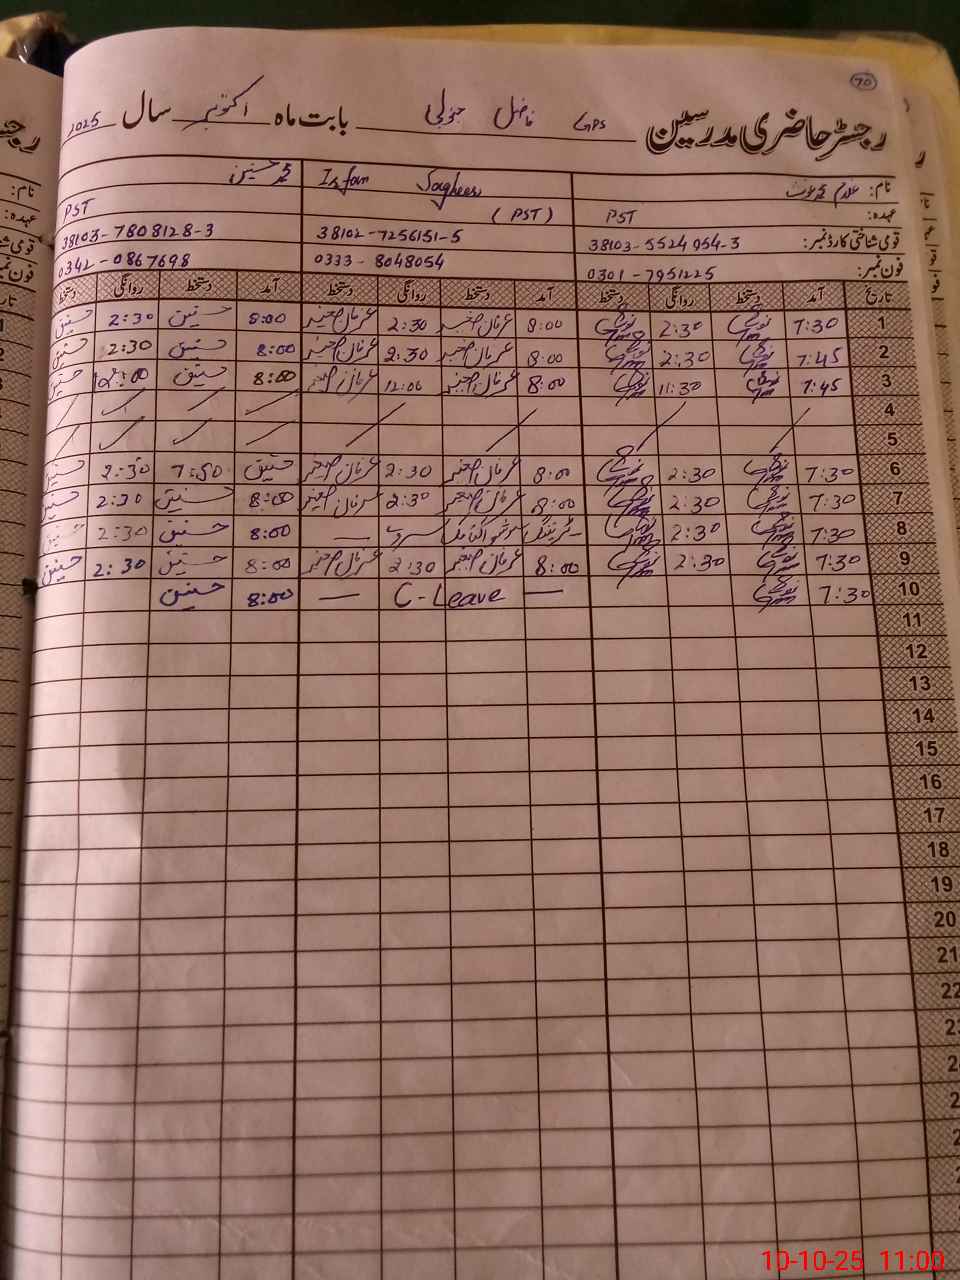 70
رجسٹر حاضری مدرسین GPS فاضل جنوبی بابت ماہ اکتوبر سال 2025
نام: غلام محمد غوث Irfan Sagheer محمد حسنین
عہدہ: PST (PST) PST
قومی شناختی کارڈ نمبر: 38103-5524954-3 38102-7256151-5 38103-7808128-3
فون نمبر: 0301-7951225 0333-8048054 0342-0867698
تاریخ آمد دستخط روانگی دستخط آمد دستخط روانگی دستخط آمد دستخط روانگی دستخط
1 7:30 2:30 8:00 عرفان صغیر 2:30 عرفان صغیر 8:00 حسنین 2:30 حسنین
2 7:45 2:30 8:00 عرفان صغیر 2:30 عرفان صغیر 8:00 حسنین 2:30 حسنین
3 7:45 11:30 8:00 عرفان صغیر 12:00 عرفان صغیر 8:00 حسنین 12:00 حسنین
4
5
6 7:30 2:30 8:00 عرفان صغیر 2:30 عرفان صغیر حسنین 7:50 2:30 حسنین
7 7:30 2:30 8:00 عرفان صغیر 2:30 عرفان صغیر 8:00 حسنین 2:30 حسنین
8 7:30 2:30 ٹریننگ سوشو اکنامک سروے — 8:00 حسنین 2:30 حسنین
9 7:30 2:30 8:00 عرفان صغیر 2:30 عرفان صغیر 8:00 حسنین 2:30 حسنین
10 7:30 — C-Leave — 8:00 حسنین
11
12
13
14
15
16
17
18
19
20
21
22
10-10-25 11:00